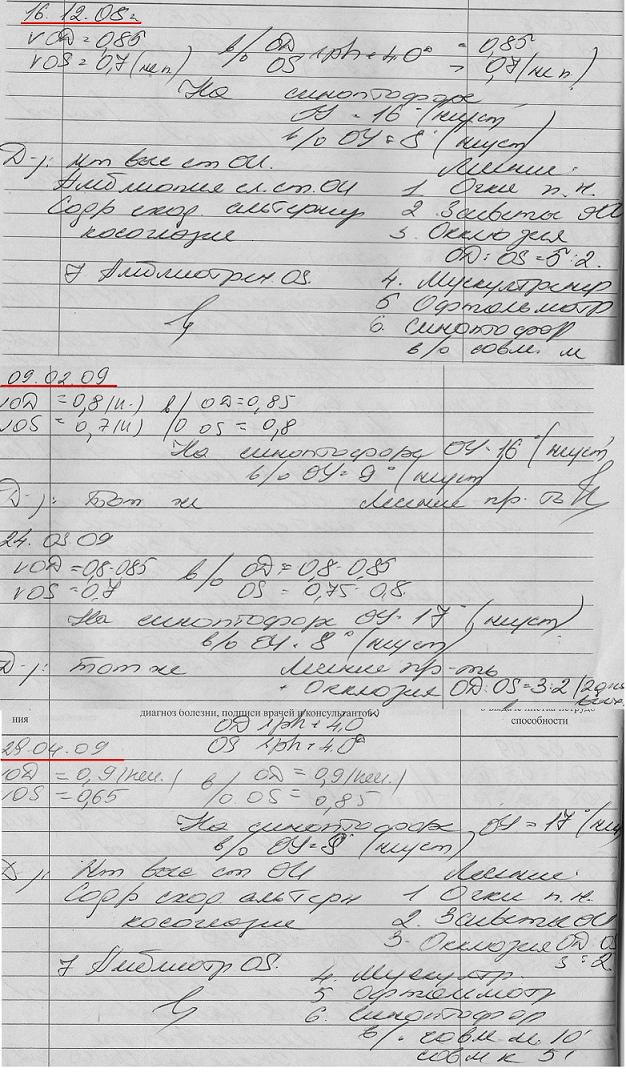 16.12.08г.
vOD = 0,85 в/о OD sph + 4,0 = 0,85
vOS = 0,7 (неп) OS = 0,7 (неп)
На синоптофоре
ОУ = 16° (
в/о ОУ = 8° (
D-з: Нm выс ст OU. Лечение:
Амблиопия сл. ст. OU 1 Очки п.н.
Содр сход. альтерниру 2. Засветы OU
косоглазие 3. Окклюзия
OD : OS = 5 : 2.
7 Амблиотрен. OS. 4. Мускултренер
5 Офтальмотр
6. Синоптофор
в/о совм. м
09.02.09
vOD = 0,8 (н.) в/ OD = 0,85
vOS = 0,7 (н) /о OS = 0,8
На синоптофоре ОУ = 16° (
в/о ОУ = 9° (
D-з: Тот же Лечение пр. ть
24.03 09
vOD = 0,8-0,85 в/о OD = 0,8-0,85
vOS = 0,7 OS = 0,75-0,8.
На синоптофоре ОУ = 17° (
в/о ОУ = 8° (
D-з: Тот же Лечение пр-ть
Окклюзия OD : OS = 3 : 2
ния диагноз болезни, подписи врачей и консультантов) способности
OD sph + 4,0
OS sph + 4,0
28.04.09
vOD = 0,9 (неп.) в/ OD = 0,9 (неп.)
vOS = 0,65 /о. OS = 0,85
На синоптофоре ОУ = 17° (
в/о ОУ = 9° (
D-з: Нm выс ст OU Лечение:
Содр сход альтерн 1 Очки п.н.
косоглазие 2. Засветы OU
3. Окклюзия OD OS
3 : 2
7 Амблиотр OS. 4. Мускултр.
5 Офтальмотр
6. Синоптофор
в/о. совм м. 10'
совм к 5'